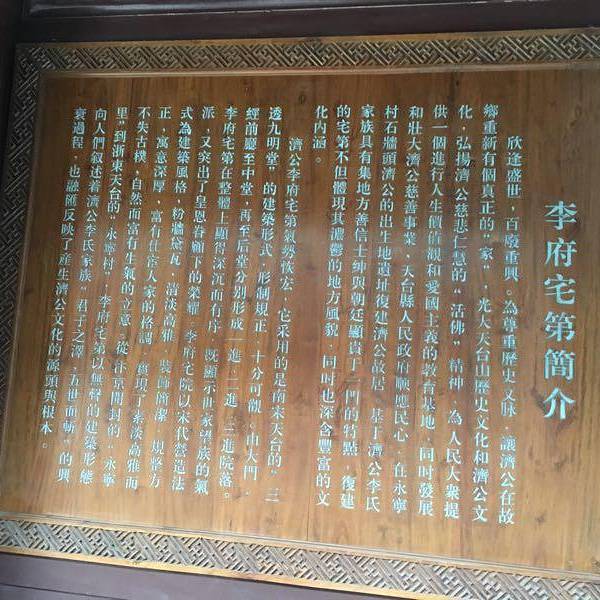 李府宅第簡介
欣逢盛世,百廢重興。為尊重歷史文脉,讓濟公在故
鄉重新有個真正的“家”,光大天台山歷史文化和濟公文
化,弘揚濟公慈悲仁慧的“活佛”精神,為人民大衆提
供一個進行人生價值觀和愛國主義的教育基地,同时發展
和壯大濟公慈善事業,天台縣人民政府順應民心,在永寧
村石墻頭濟公的出生地遺址復建濟公故居。基于濟公李氏
家族具有集地方善信士紳與朝廷顯貴一門的特點,復建
的宅第不但體現其濃鬱的地方風貌,同时也深含豐富的文
化内涵。
濟公李府宅第氣勢恢宏,它采用的是南宋天台的“三
透九明堂”的建築形式,形制規正,十分可觀。由大門
經前廳至中堂,再至后堂分别形成一進、二進、三進院落。
李府宅第在整體上顯得深沉而有序,既顯示世家望族的氣
派,又突出了皇恩眷顧下的榮耀。李府宅院以宋代營造法
式為建築風格,粉墻黛瓦,清淡高雅,裝飾簡潔,規整方
正,寓意深厚,富有仕宦人家的格調,體現了素淡高雅而
不失古樸,自然而富有生氣的立意。從汴京開封的“永寧
里”到浙東天台的“永寧村”,李府宅第以無聲的建築形態
向人們叙述着濟公李氏家族“君子之澤,五世而斬”的興
衰過程,也融匯反映了産生濟公文化的源頭與根本。